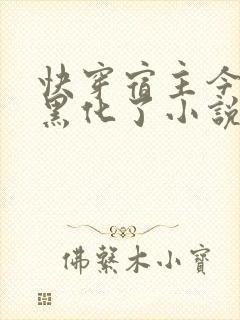 快穿宿主今
黑化了小說
佛繫木小寶